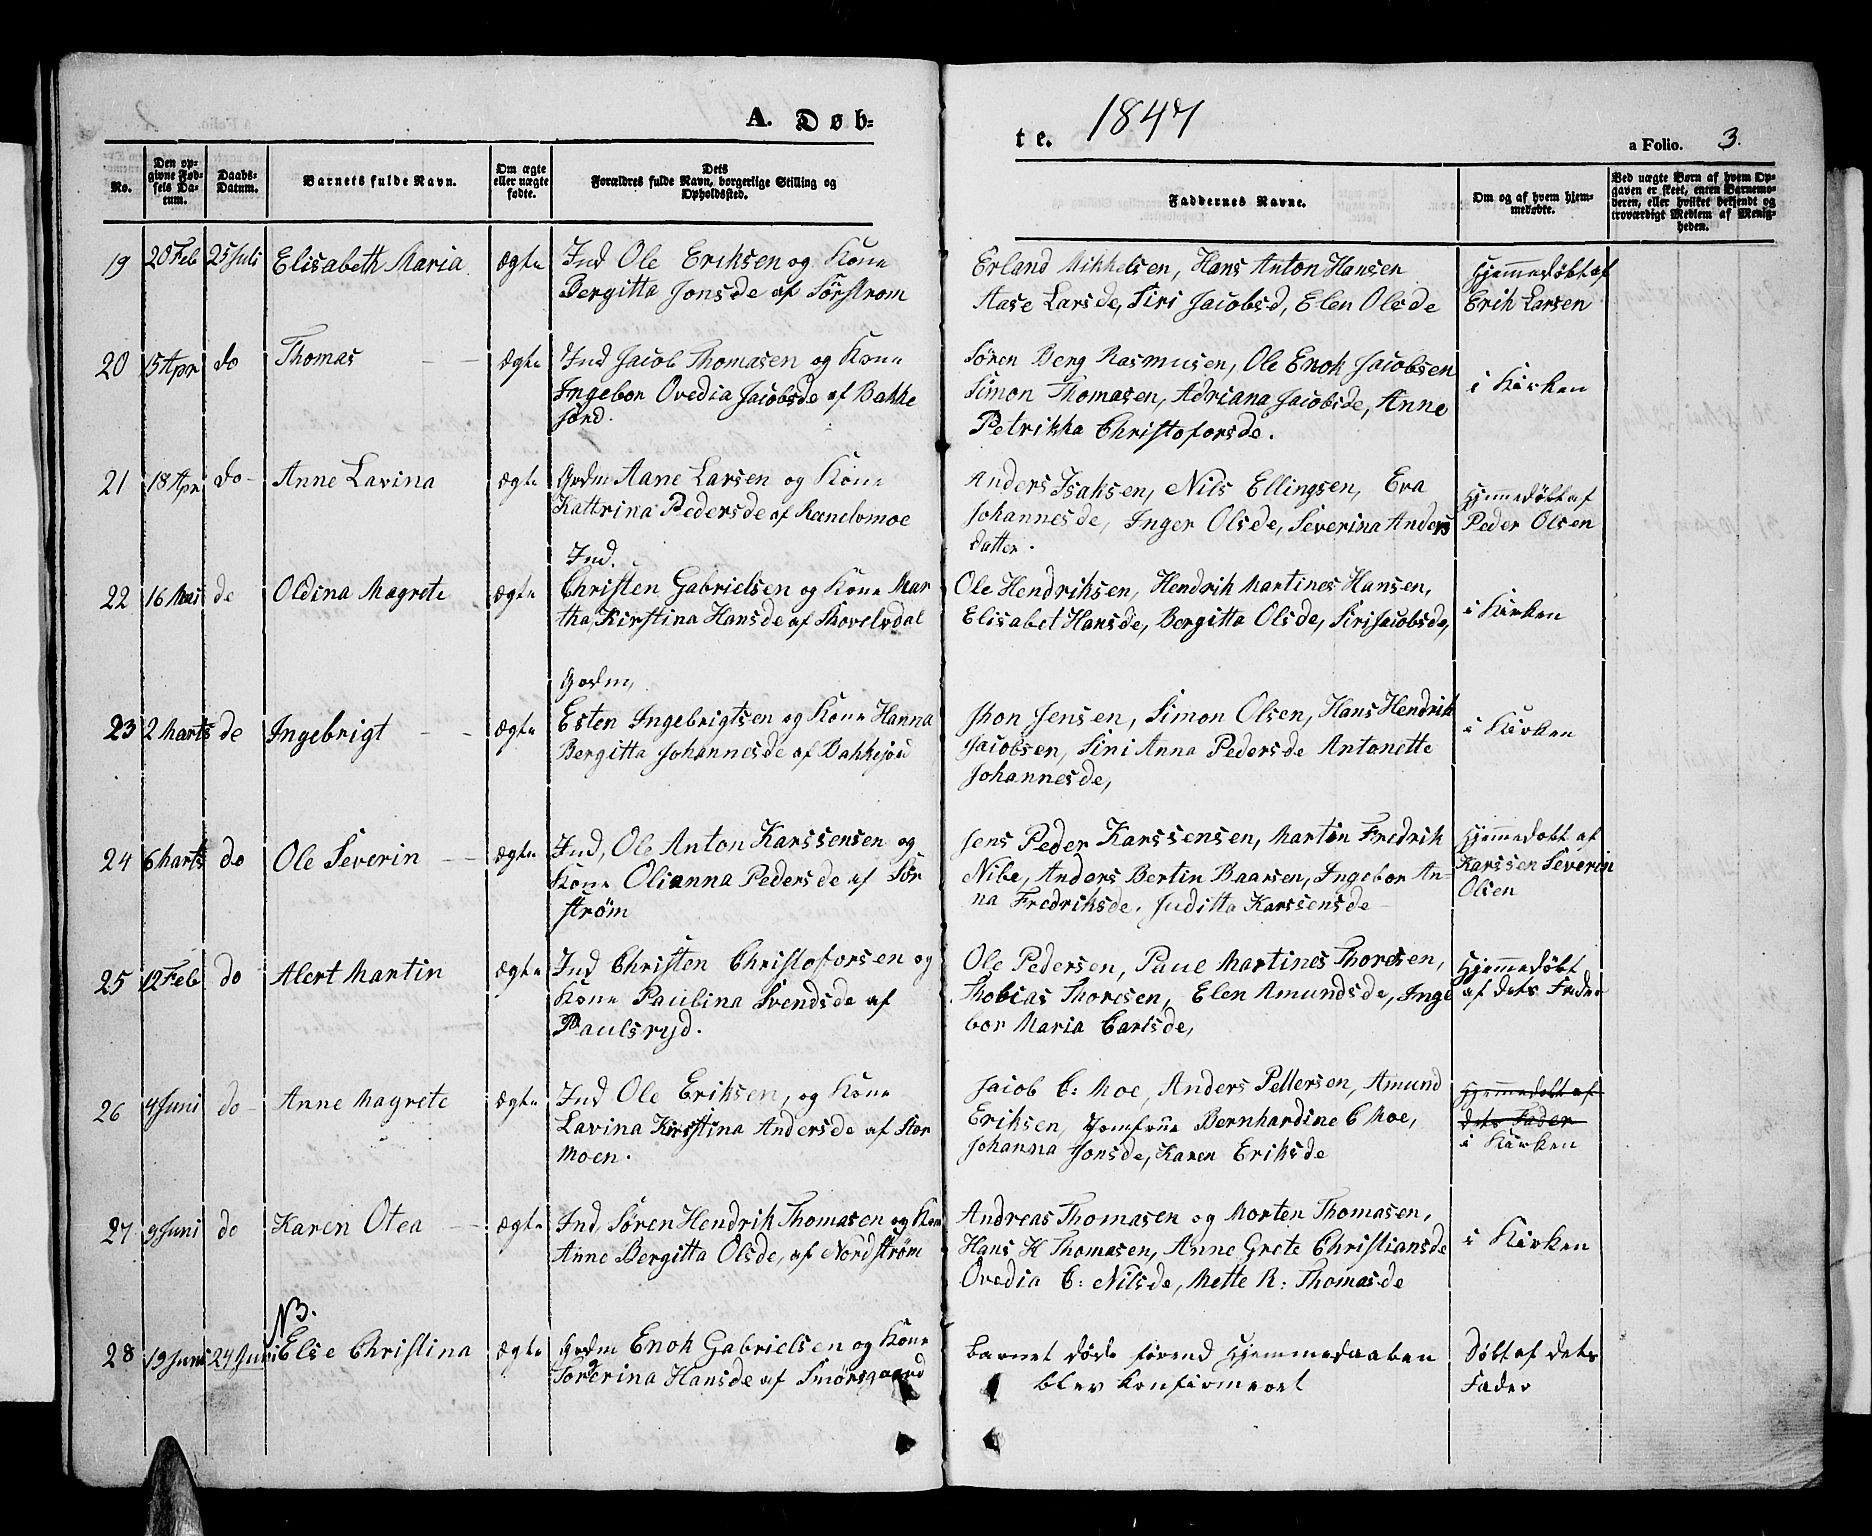 A. Døb=
te. 1847
a Folio. 3.
No.
Den op-
givne Fød-
sels Da-
tum.
Daabs-
Datum.
Barnets fulde Navn.
Om ægte
eller uægte
fødte.
Dets
Forældres fulde Navn, borgerlige Stilling og
Opholdssted.
Faddernes Navne.
Om og af hvem hjem-
medøbte.
Ved uægte Børn af hvem Op-
gaven er skeet, enten Barnemo-
deren, eller hvilket bekjendt og
troværdigt Medlem af Menig-
heden.
19 20 Feb 25 Juli Elisabeth Maria ægte Ind Ole Eriksen og Kone
Bergitta Jonsde af Sørstrøm
Erland Mikkelsen, Hans Anton Hansen
Aase Larsde, Siri Jacobsd, Elen Olsde
Hjemmedøbt af
Erik Larsen
20 15 Apr do Thomas ægte Ind Jacob Thomasen og Kone
Ingebor Ovedia Jacobsde af Bakke
jord.
Søren Berg Rasmusen, Ole Enok Jacobsen
Simon Thomasen, Adriana Jacobsde, Anne
Petrikka Christoforsde.
i Kirken
21 18 Apr do Anne Lavina ægte Gvdm Aane Larsen og Kone
Kattrina Pedersde af
Anders Isaksen, Nils Ellingsen, Eva
Johannesde, Inger Olsde, Severina Anders
datter.
Hjemmedøbt af
Peder Olsen
22 16 Mai do Oldina Magrete ægte Ind.
Christen Gabrielsen og Kone Mar
tha Kirstina Hansde af Skovelvdal
Ole Hendriksen, Hendrik Martines Hansen,
Elisabet Hansde, Bergitta Olsde, Siri Jacobsde,
i Kirken
23 2 Marts do Ingebrigt ægte Gvdm,
Esten Ingebrigtsen og Kone Hanna
Bergitta Johannesde af Bakkejord
Jhon Jensen, Simon Olsen, Hans Hendrik
Jacobsen, Sini Anna Pedersde Antonette
Johannesde,
i Kirken
24 6 Marts do Ole Severin ægte Ind, Ole Anton Karssensen og
Kone Olianna Pedersde af Sør
strøm
Jens Peder Karssensen, Martin Fredrik
Nibe, Anders Bertin Baarsen, Ingebor An=
na Fredriksde, Juditta Karssensde
Hjemmedøbt af
Karssen Severin
Olsen
25 12 Feb do Alert Martin ægte Ind Christen Christoforsen og
Kone Paulina Svendsde af
Paulsryd.
Ole Pedersen, Paul Martines Thoresen,
Thobias Thoresen, Elen Amundsde, Inge
bor Maria Carlsde,
Hjemmedøbt
af dets Fader
26 4 Juni do Anne Magrete ægte Ind Ole Eriksen, og Kone
Lavina Kirstina Andersde af Stor
moen.
Jacob C: Moe, Anders Pettersen, Amund
Eriksen, Jomfrue Bernhardine C Moe,
Johanna Jonsde, Karen Eriksde
Hjemmedøbt af
dets Fader
i Kirken
27 9 Juni do Karen Otea ægte Ind Søren Hendrik Thomasen og Kone
Anne Bergitta Olsde, af Nordstrøm
Andreas Thomasen og Morten Thomasen,
Hans H Thomasen, Anne Grete Christiansde
Ovedia C: Nilsde, Mette R: Thomasde
i Kirken
NB.
28 19 Juni 24 Juni Else Christina ægte Gvdm Enok Gabrielsen og Kone
Sørerina Hansde af Smørsgaard
barnet døde førend Hjemmedaaben
blev konfirmeret
Døbt af dets
Fader